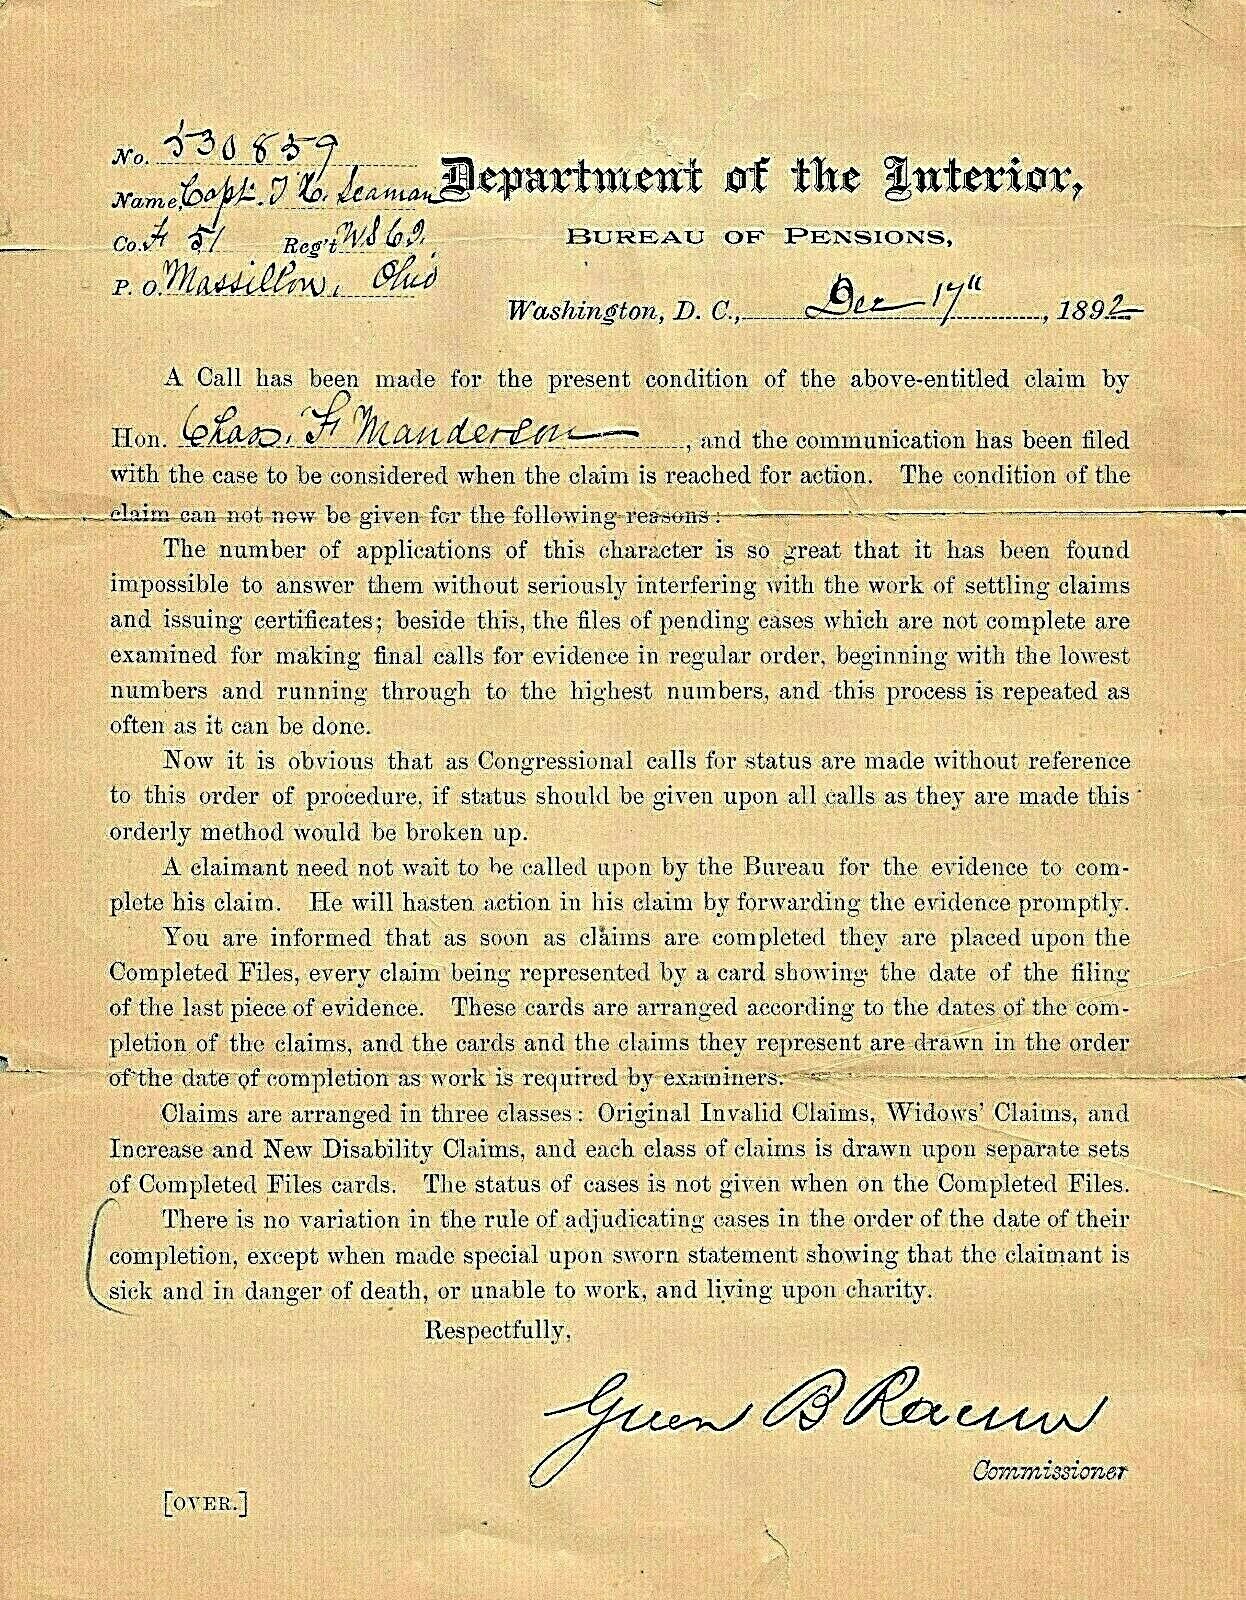 No. 530859
Name, Capt. T H. Seaman
Co. F 51 Reg't
P. O. Massillon, Ohio
Department of the Interior,
BUREAU OF PENSIONS,
Washington, D. C., Dec 17", 1892
A Call has been made for the present condition of the above-entitled claim by
Hon. Chas. F Manderson, and the communication has been filed
with the case to be considered when the claim is reached for action. The condition of the
claim can not now be given for the following reasons:
The number of applications of this character is so great that it has been found
impossible to answer them without seriously interfering with the work of settling claims
and issuing certificates; beside this, the files of pending cases which are not complete are
examined for making final calls for evidence in regular order, beginning with the lowest
numbers and running through to the highest numbers, and this process is repeated as
often as it can be done.
Now it is obvious that as Congressional calls for status are made without reference
to this order of procedure, if status should be given upon all calls as they are made this
orderly method would be broken up.
A claimant need not wait to be called upon by the Bureau for the evidence to com-
plete his claim. He will hasten action in his claim by forwarding the evidence promptly.
You are informed that as soon as claims are completed they are placed upon the
Completed Files, every claim being represented by a card showing the date of the filing
of the last piece of evidence. These cards are arranged according to the dates of the com-
pletion of the claims, and the cards and the claims they represent are drawn in the order
of the date of completion as work is required by examiners.
Claims are arranged in three classes: Original Invalid Claims, Widows' Claims, and
Increase and New Disability Claims, and each class of claims is drawn upon separate sets
of Completed Files cards. The status of cases is not given when on the Completed Files.
There is no variation in the rule of adjudicating cases in the order of the date of their
completion, except when made special upon sworn statement showing that the claimant is
sick and in danger of death, or unable to work, and living upon charity.
Respectfully,
Green B Raum
Commissioner
[OVER.]